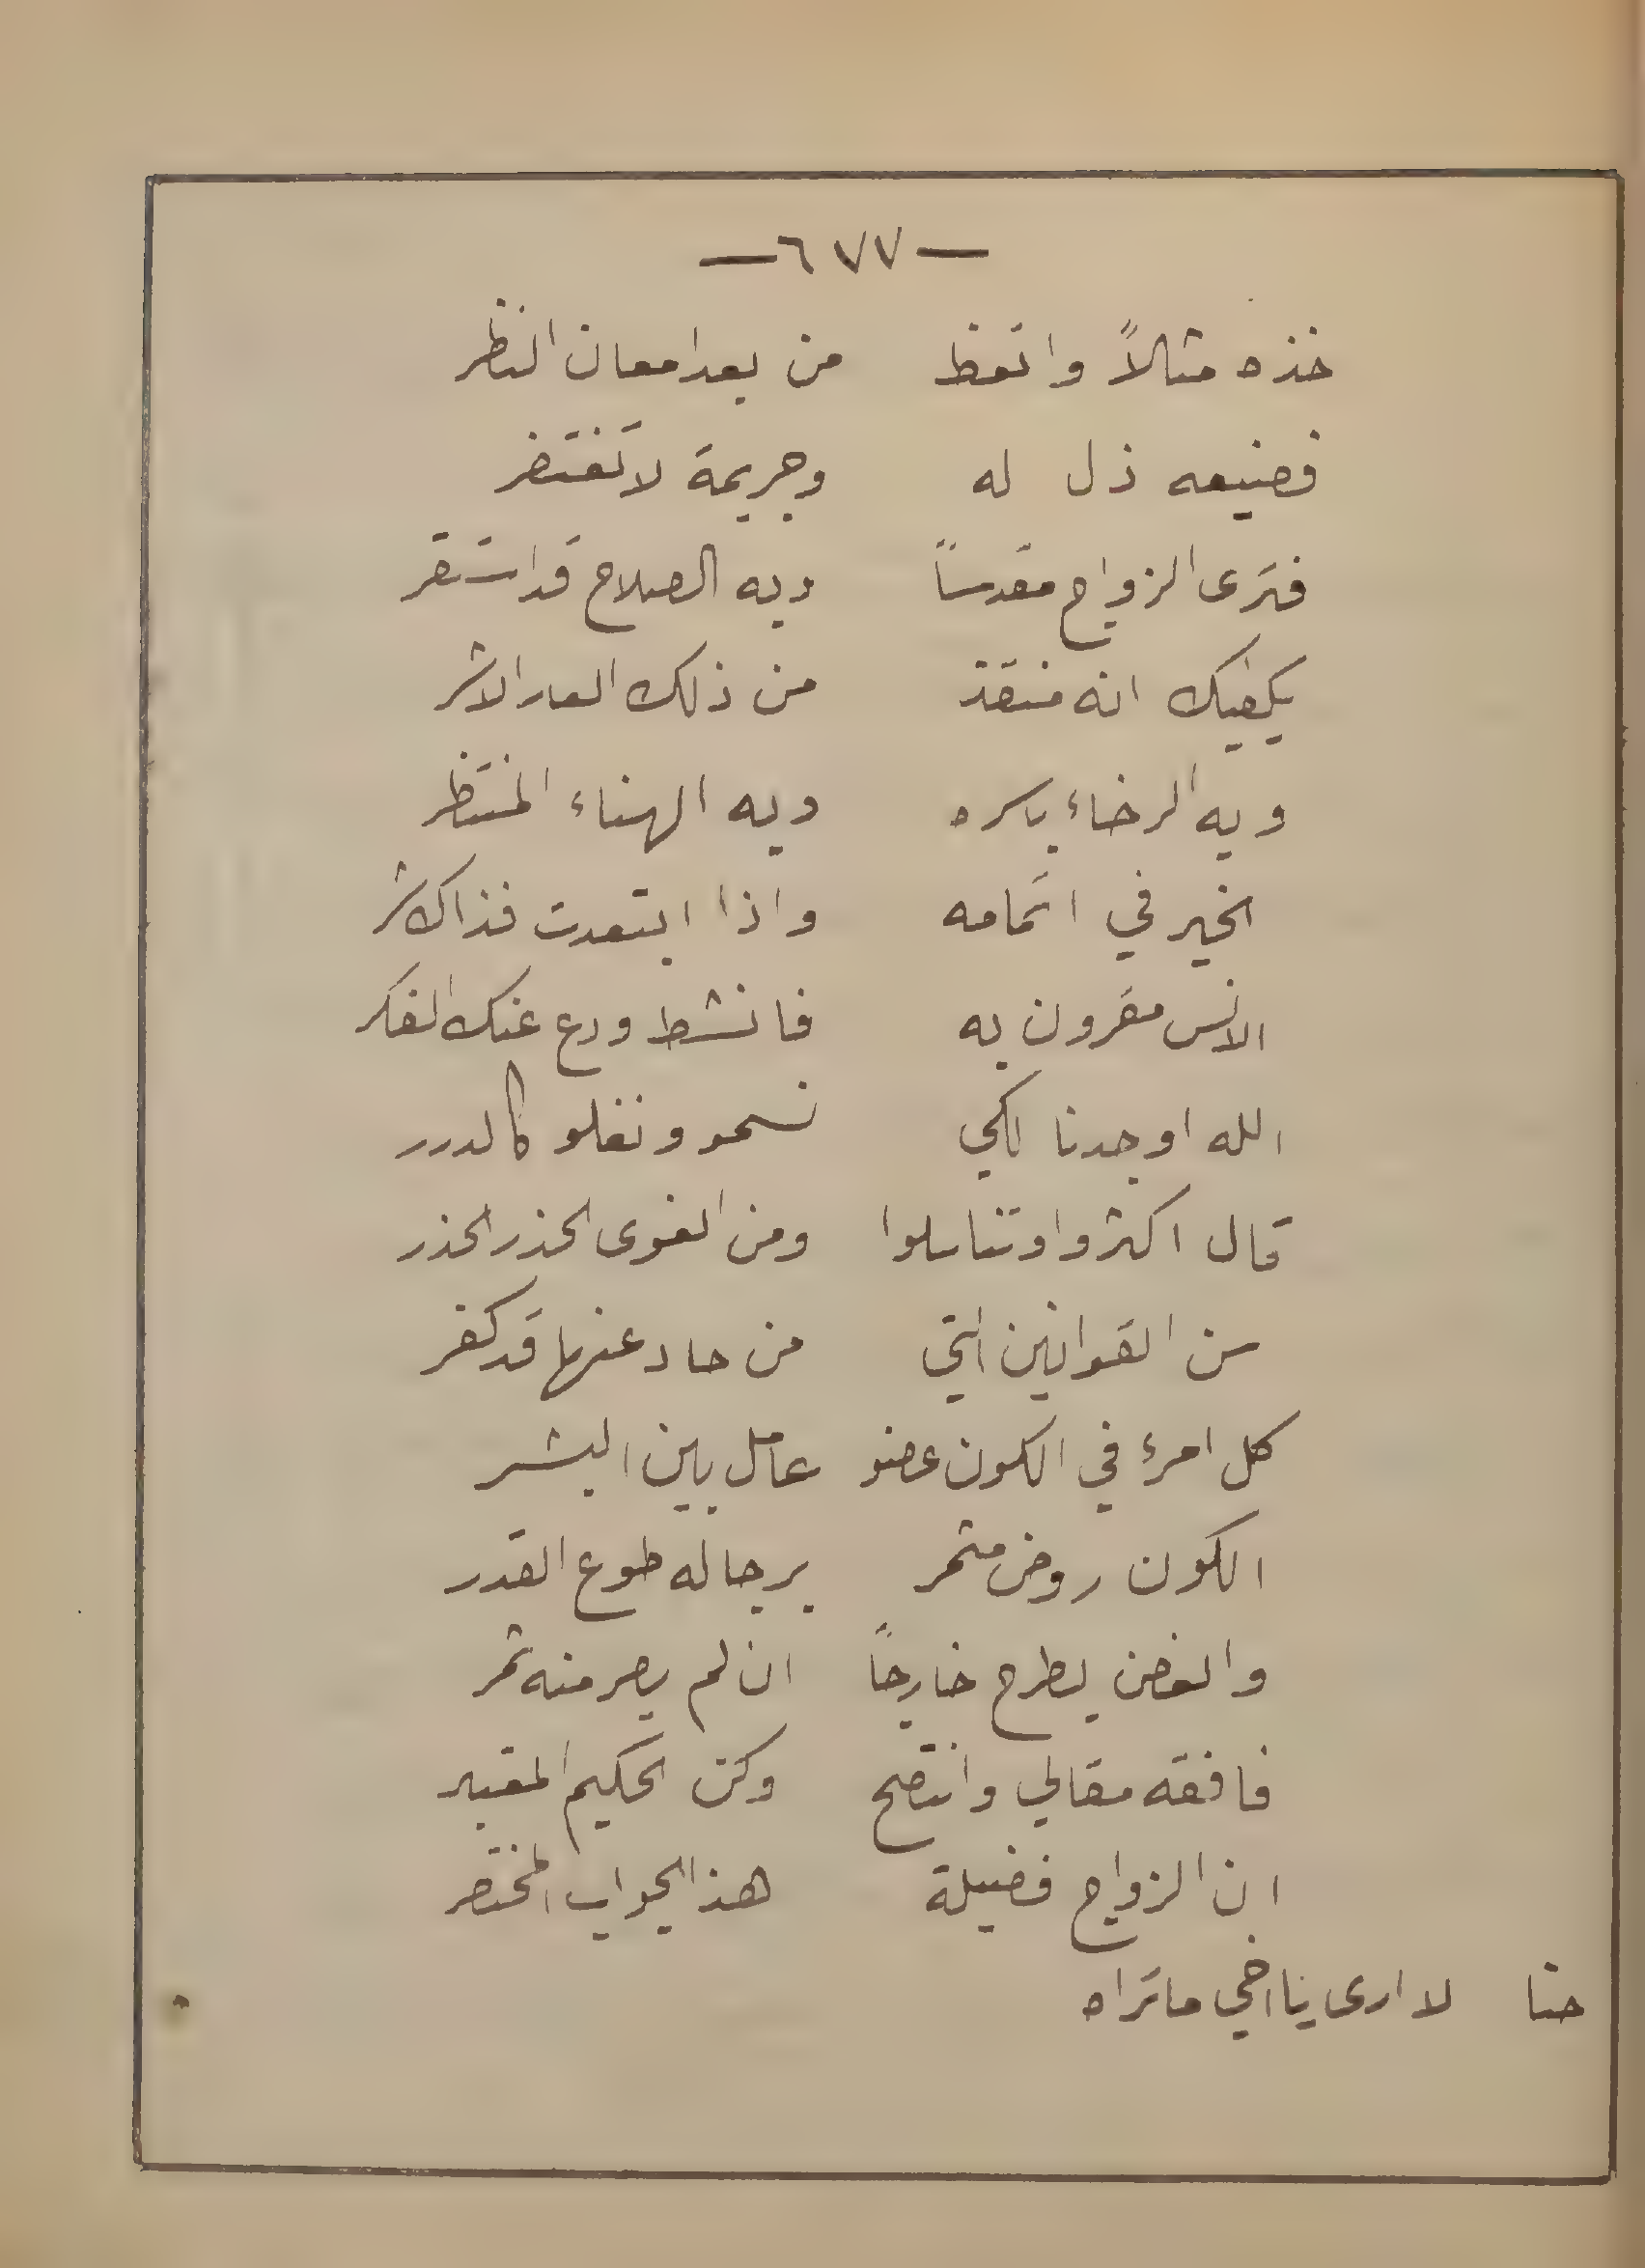 — ٦٧٧ —
خذه مثالاً واتعظ من بعد امعان النظر
فصنيعه ذل له وجريمة لا تغتفر
فترى الزواج مقدساً وبه الصلاح قد استقر
يكفيك انه منقذ من ذلك العار الاشر
وبه الرخاء باسره وبه الهناء المنتظر
الخير في اتمامه واذا ابتعدت فذاك شر
الانس مقرون به فانشط ودع عنك الفكر
الله اوجدنا لكي نسمو ونغلو كالدرر
قال اكثروا وتناسلوا ومن الغوى الحذر الحذر
سن القوانين التي من حاد عنها قد كفر
كل امرء في الكون عضو عامل بين البشر
الكون روض مثمر برجاله طوع القدر
والغصن يطرح خارجاً ان لم يصر منه ثمر
فافقه مقالي وانتصح وكن الحكيم المعتبر
ان الزواج فضيلة هذا الجواب المختصر
حنا لا ارى يا اخي ما تراه